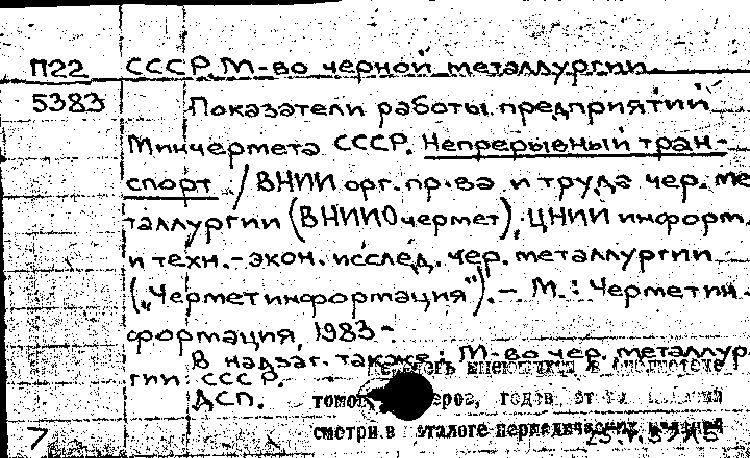 П22 СССР. М-во черной металлургии
5383 Показатели работы предприятий
Минчермета СССР. Непрерывный тран-
спорт / ВНИИ орг. пр-ва и труда чер. ме
таллургии (ВНИИОчермет), ЦНИИ информ.
и техн.-экон. исслед. чер. металлургии
(„Черметинформация"). — М.: Черметин-
формация, 1983-
В надзаг. также: М-во чер. металлур-
гии СССР.
ДСП.
годов
смотри в каталоге периодических изданий
7